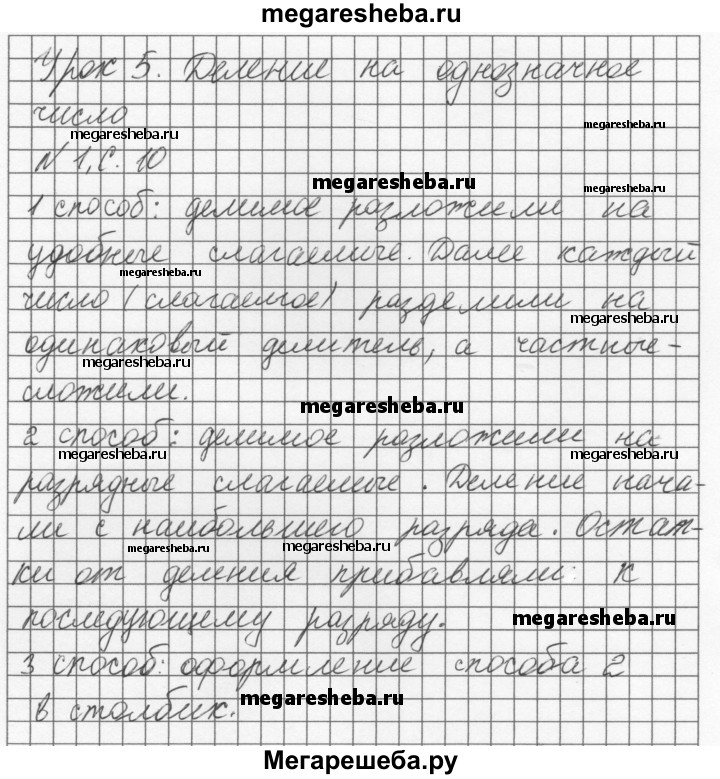 megaresheba.ru
Урок 5. Деление на однозначное
число
megaresheba.ru
megaresheba.ru
N 1, с. 10
megaresheba.ru
megaresheba.ru
1 способ: делимое разложили на
удобные слагаемые. Далее каждый
megaresheba.ru
число (слагаемое) разделили на
megaresheba.ru
одинаковый делитель, а частные -
megaresheba.ru
сложили.
megaresheba.ru
2 способ: делимое разложили на
megaresheba.ru
megaresheba.ru
разрядные слагаемые. Деление нача-
ли с наибольшего разряда. Остат-
megaresheba.ru
megaresheba.ru
ки от деления прибавляли к
последующему разряду.
megaresheba.ru
3 способ: оформление способа 2
megaresheba.ru
в столбик.
Мегарешеба.ру